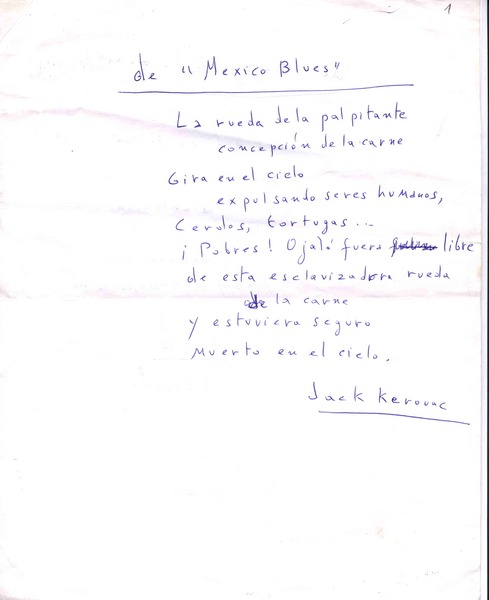 1
de "Mexico Blues"
La rueda de la palpitante
concepción de la carne
Gira en el cielo
expulsando seres humanos,
Cerdos, tortugas...
¡Pobres! Ojalá fuera libre
de esta esclavizadora rueda
de la carne
y estuviera seguro
Muerto en el cielo.
Jack Kerouac